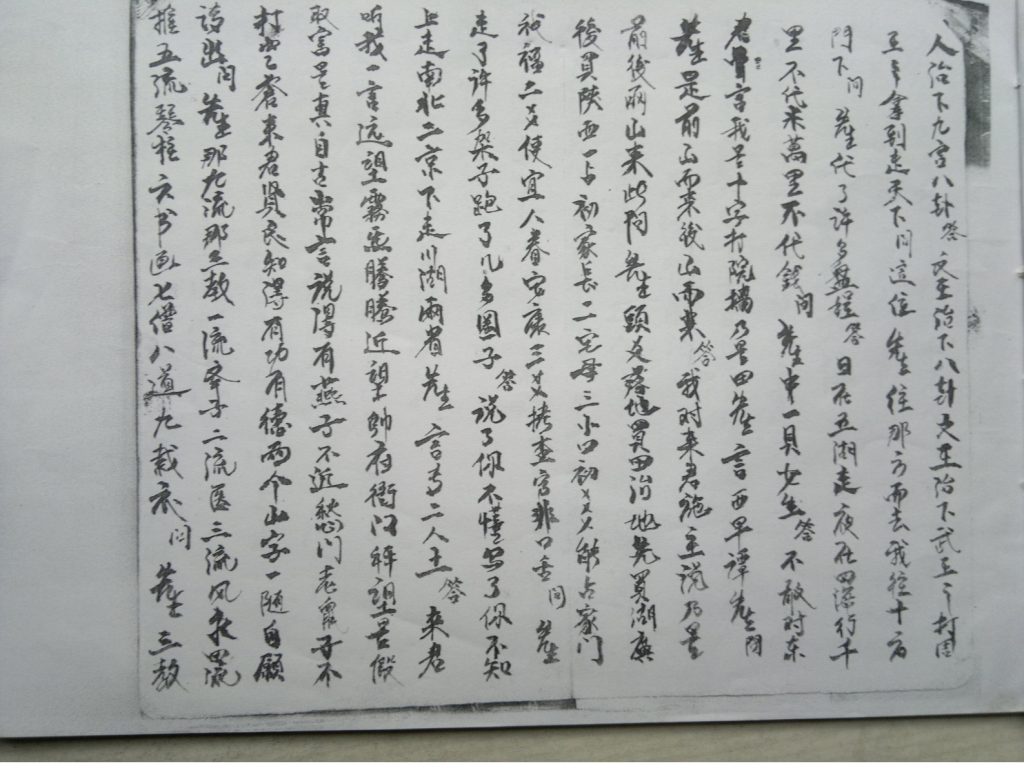 人治下九宫八卦答文王治下八卦文王治下武王々打周
王手拿到走天下问這位先生往那方而去我往十方
門下问先生代了许多盘程答日在五湖走夜在四海行千
里不代米萬里不代錢问先生中一貝女生答不敢对东
君言我是十字打院墙乃是田先生言西早譚先生问
先生是前山而来後山而来答我对来君施主說乃是
前後兩山来此问先生頭爻落地買田治地先買湖廣
後買陕西一占初家长二宅母三小口初爻占家门
祝福二爻使宜人眷安康三爻撓查官非口舌问先生
走了许多梁子跑了几多圈子答说了你不懂写了你不知
上走南北二京下走川湖兩省先生言寺二人土答来君
听我一言远望霧气騰騰近望帥府衙门祥望是假
取寳是真自古常言說得有燕子不近愁门老鼠子不
打空仓東君贤良知得有功有德两个山字一随自願
請出问先生那九流那三教一流举子二流医三流风水四流
推五流琴棋六书画七僧八道九裁衣问先生三教